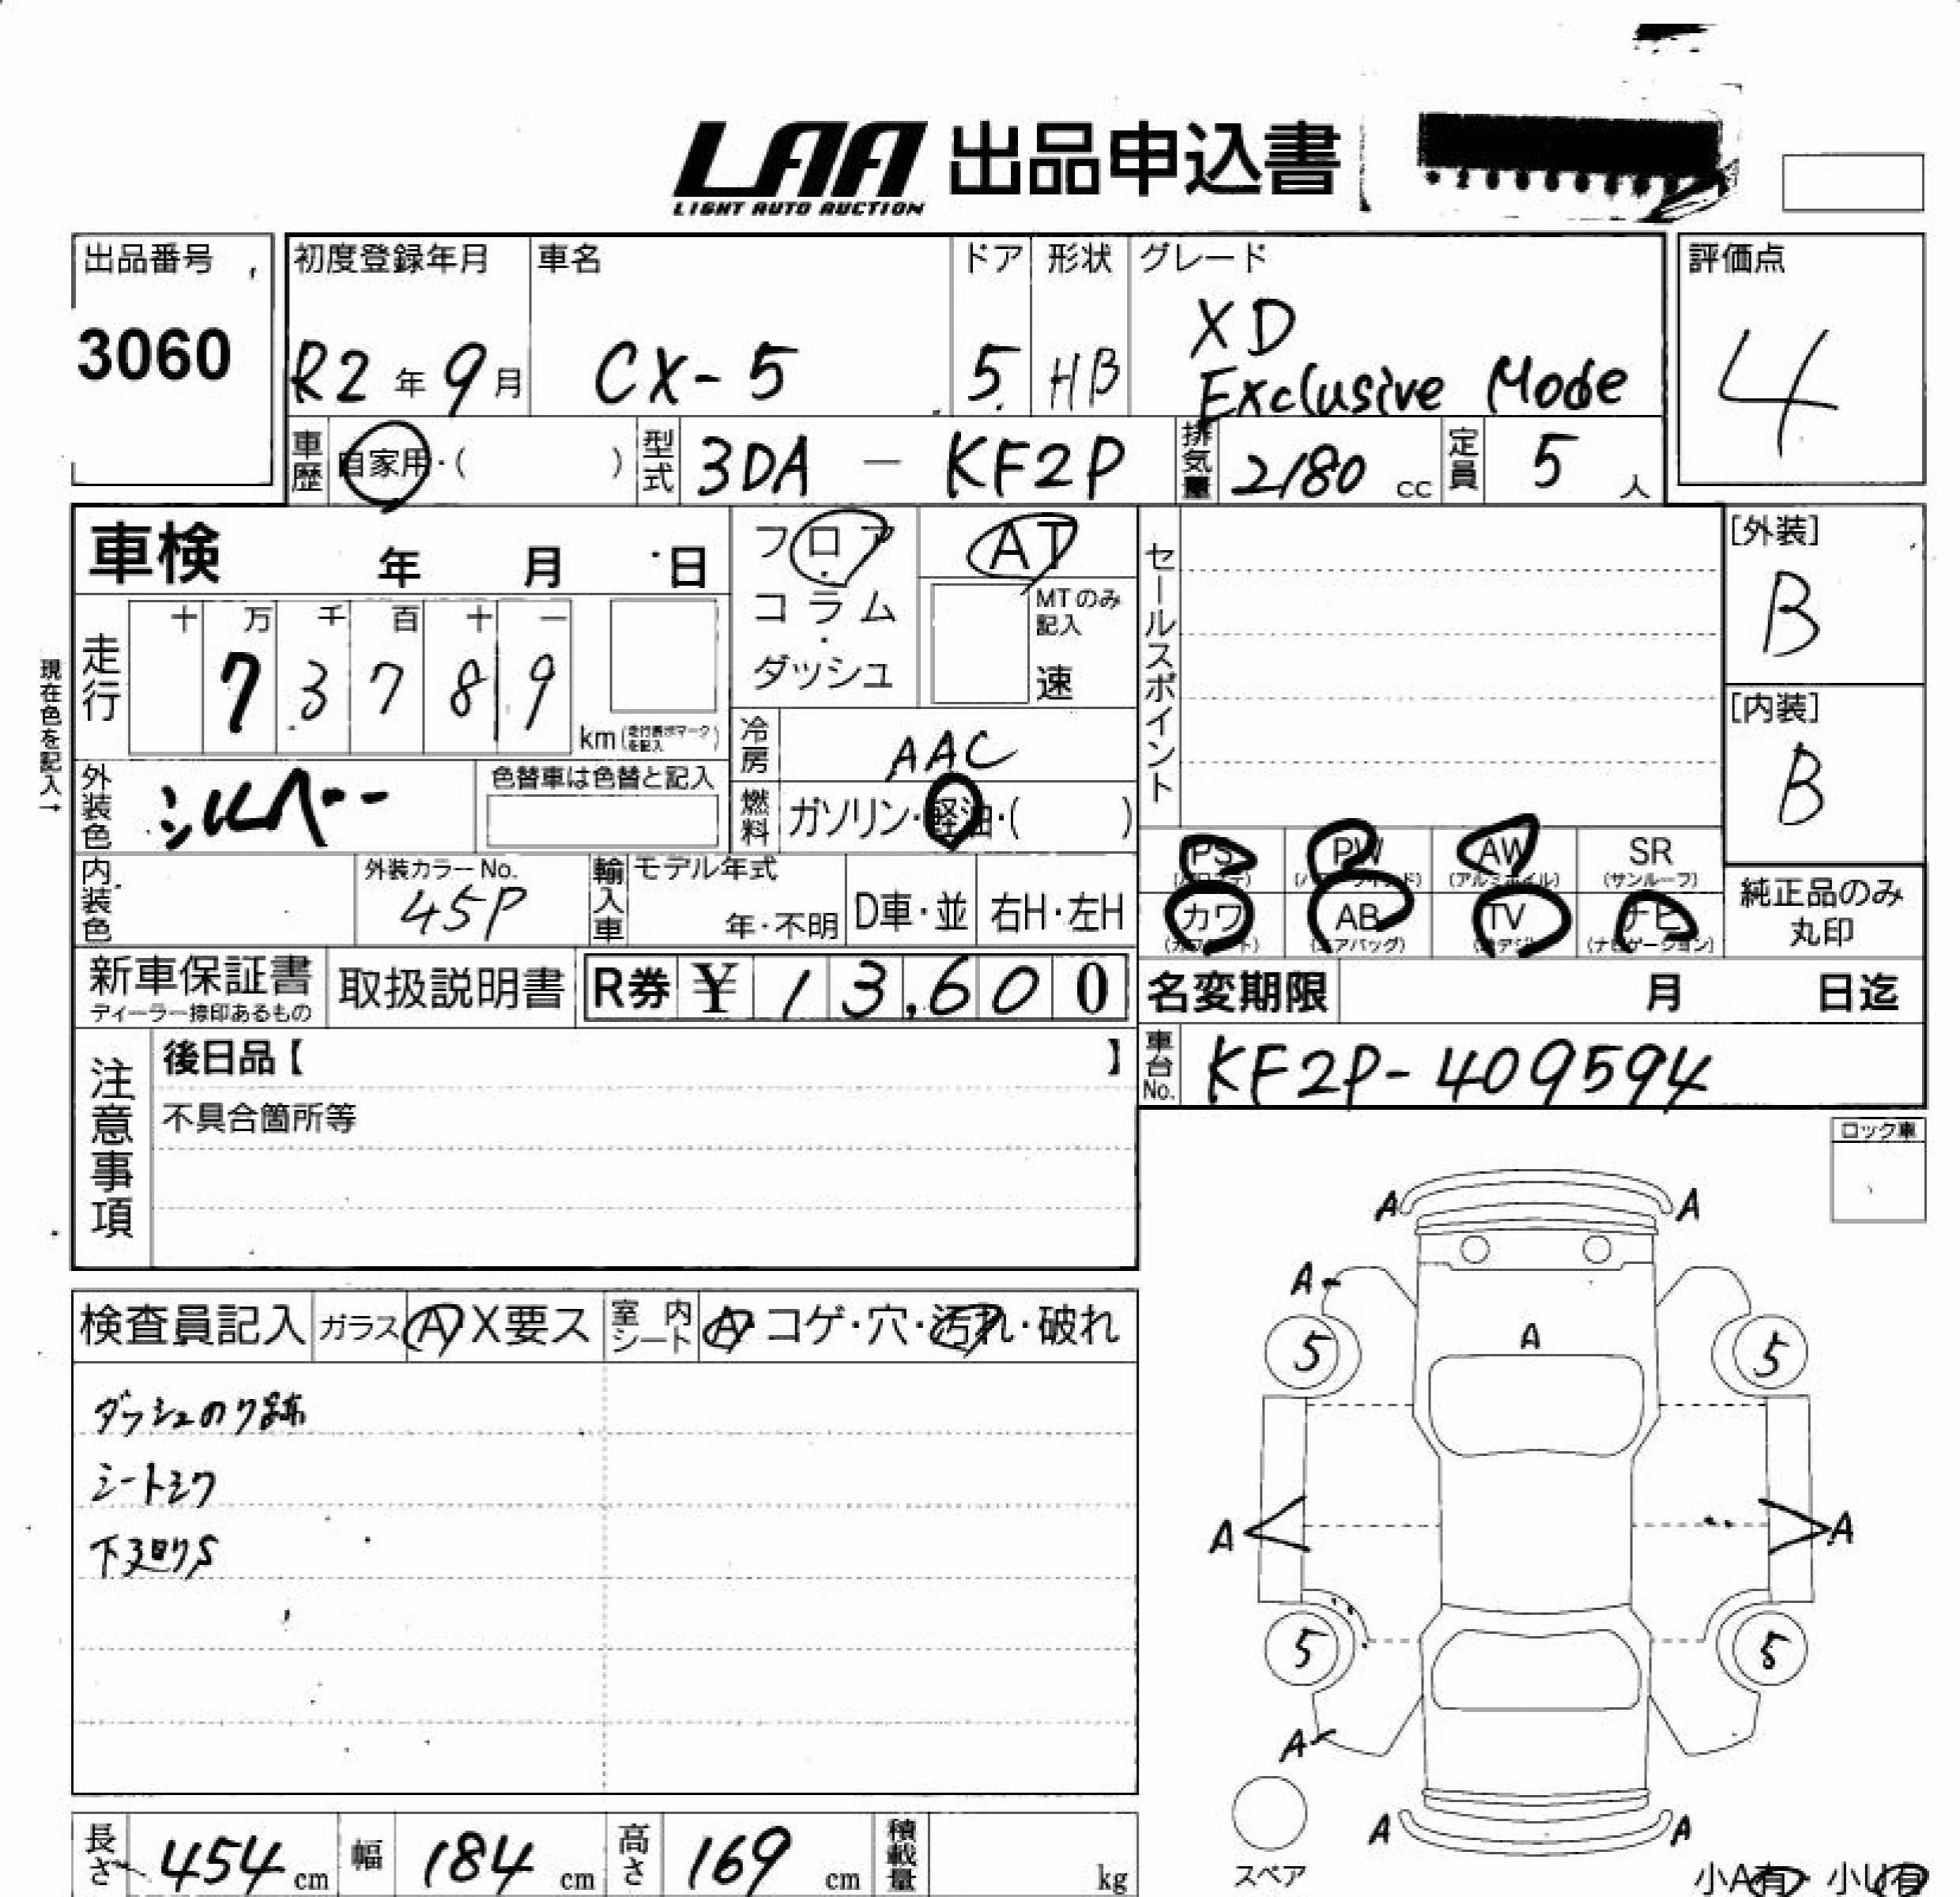 LAA 出品申込書
LIGHT AUTO AUCTION
出品番号
3060
初度登録年月
R2年9月
車名
CX-5
ドア
5
形状
HB
グレード
XD
Exclusive Mode
評価点
4
車歴 自家用・( )
型式 3DA - KF2P
排気量 2180 cc
定員 5 人
車検 年 月 日
フロア・コラム・ダッシュ
AT
MTのみ記入
速
セールスポイント
[外装]
B
[内装]
B
現在色を記入→
走行
十 万 千 百 十 一
7 3 7 8 9
km
冷房 AAC
外装色 シルバー
色替車は色替と記入
燃料 ガソリン・軽油・( )
内装色
外装カラーNo.
45P
輸入車
モデル年式
年・不明
D車・並
右H・左H
PS PW AW SR
(アルミホイル) (サンルーフ)
カワ AB TV ナビ
(エアバッグ) (ナビゲーション)
純正品のみ
丸印
新車保証書
ディーラー捺印あるもの
取扱説明書
R券 ¥ 13,600
名変期限 月 日迄
車台No. KF2P-409594
注意事項
後日品【 】
不具合箇所等
ロック車
検査員記入
ガラス A X要ス
室内シート A・コゲ・穴・汚れ・破れ
ダッシュのり跡
シートシワ
下廻りS
A A
A
5 A 5
A A
5 5
A
A A
スペア
小A有・小U有
長さ 454 cm
幅 184 cm
高さ 169 cm
積載量 kg